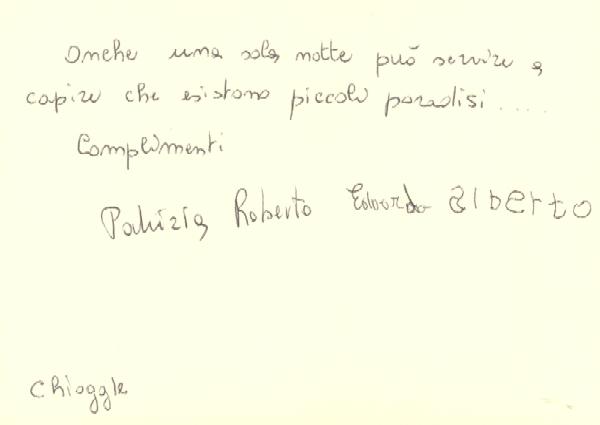 Anche una sola notte può servire a
capire che esistono piccoli paradisi ....
Complimenti
Patrizia Roberto Edoardo alberto
Chioggia